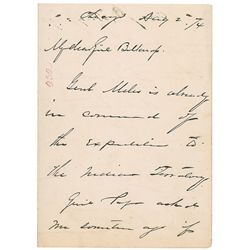 Aug 2. 74
My dear Genl
Genl Miles is already
in command of
the Expedition to
the Indian Territory.
Genl Pope asked
me sometime ago if